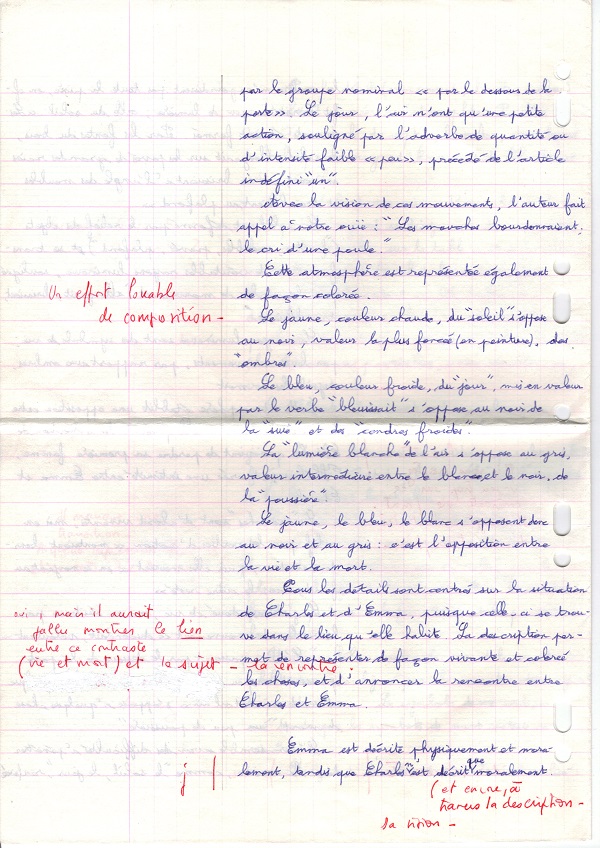 par le groupe nominal « par le dessous de la
porte ». Le jour, l'air n'ont qu'une petite
action, souligné par l'adverbe de quantité ou
d'intensité faible « peu », précédé de l'article
indéfini "un".
Avec la vision de ces mouvements, l'auteur fait
appel à notre ouïe : "Les mouches bourdonnaient;
le cri d'une poule."
Cette atmosphère est représentée également
de façon colorée.
Un effort louable
de composition -
Le jaune, couleur chaude, du "soleil" s'oppose
au noir, valeur la plus foncé (en peinture), des
"ombres".
Le bleu, couleur froide, du "jour", mis en valeur
par le verbe "bleuissait" s'oppose au noir de
la "suie" et des "cendres froides".
La "lumière blanche" de l'air s'oppose au gris,
valeur intermédiaire entre le blanc et le noir, de
la "poussière".
Le jaune, le bleu, le blanc s'opposent donc
au noir et au gris : c'est l'opposition entre
la vie et la mort.
Tous les détails sont centrés sur la situation
de Charles et d'Emma, puisque celle-ci se trou-
ve dans le lieu qu'elle habite. La description per-
met de représenter de façon vivante et coloré
les choses, et d'annoncer la rencontre entre
Charles et Emma.
oui, mais il aurait
fallu montrer le lien
entre ce contraste
(vie et mort) et le sujet - la rencontre.
Emma est décrite physiquement et mora-
lement, tandis que Charles n'est décrit que moralement.
(et encore, à
travers la description -
sa vision -